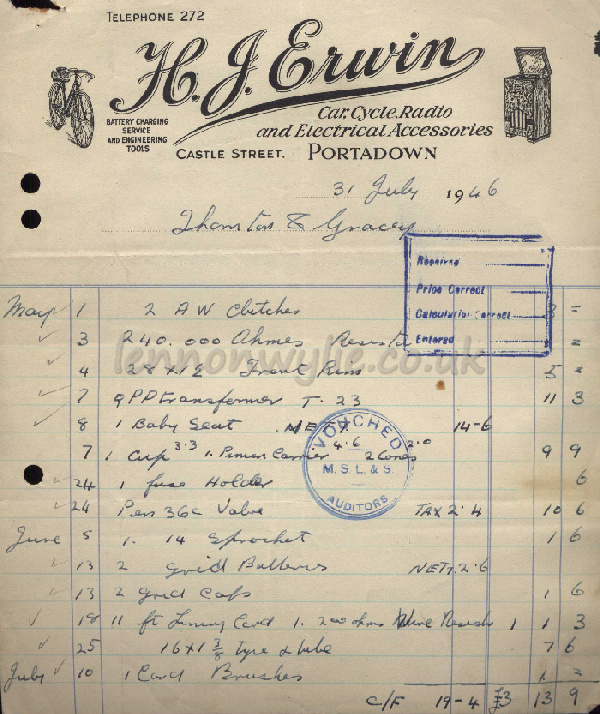 TELEPHONE 272
H. J. Erwin
Car, Cycle, Radio
and Electrical Accessories
BATTERY CHARGING
SERVICE
AND ENGINEERING
TOOLS
CASTLE STREET. PORTADOWN
31 July 1946
& Gracey
Received
Price Correct
Calculation Correct
Entered
May 1 2 A W Clutches 3 =
3 240.000 Ohmes =
4 28 x 1½ Front Rim 5 =
7 9PP transformer T. 23 11 3
8 1 Baby Seat NETT 14-6
7 1 Cup 3.3 1. Carrier 4.6 2 Cones 2.0 9 9
24 1 fuse Holder 6
24 Pen 36c Valve TAX 2.4 10 6
June 5 1. 14 Sprocket 1 6
13 2 Grid NETT. 2.6
13 2 Grid Caps 1 6
18 11 ft Cord 1. 200 ohms Wire 1 1 3
25 16 x 1 3/8 tyre & tube 7 6
July 10 1 Card Brushes 1 =
C/F 19-4 £3 13 9
VOUCHED
M.S.L.&S.
AUDITORS
lennonwylie.co.uk